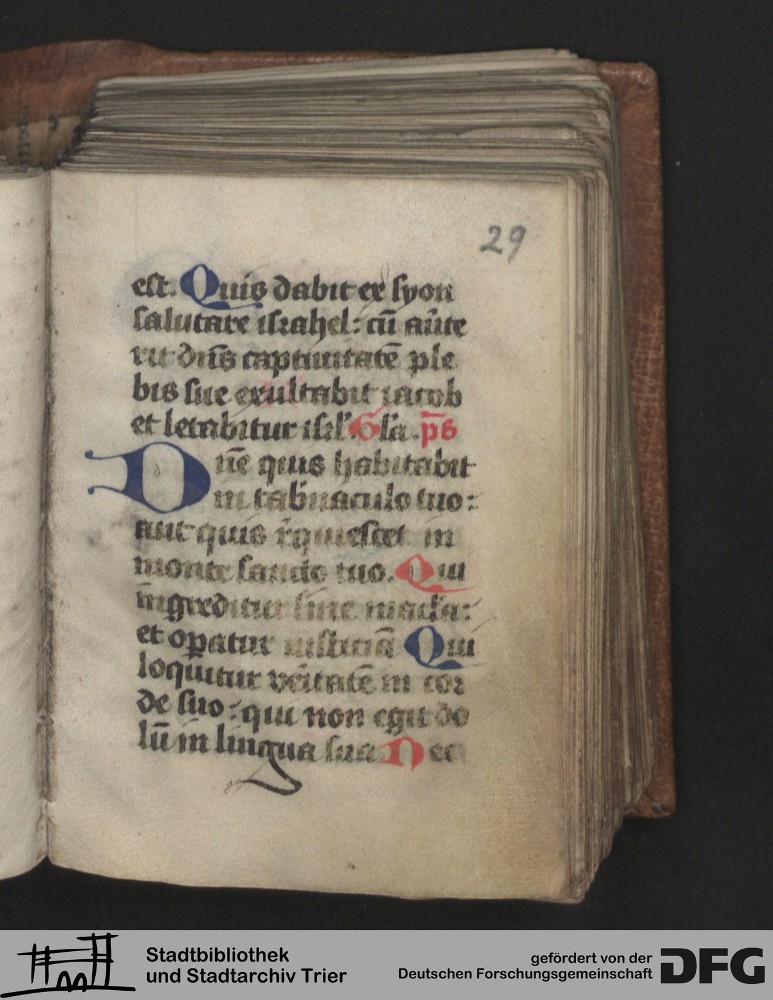 29
est. Quis dabit ex syon
salutare israhel: cū au̅te
rit dn̄s captiuitatē ple
bis sue exultabit iacob
et letabitur isrl̓. Gl̓a. p̄s
Dn̄e quis habitabit
in tab̓naculo tuo:
aut quis r̄quiescet in
monte sancto tuo. Qui
ingreditur sine macl̓a:
et oꝑatur iusticiā Qui
loquitur v̓itatē in cor
de suo: qui non egit do
lū in lingua sua Nec
Stadtbibliothek
und Stadtarchiv Trier
gefördert von der
Deutschen Forschungsgemeinschaft
DFG